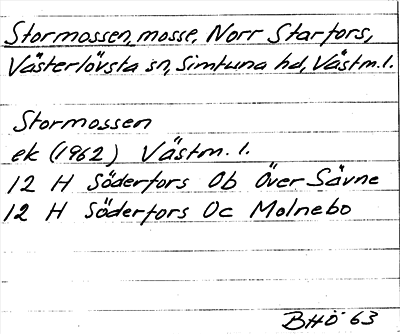 Stormossen, mosse, Norr Starfors,
Västerlövsta sn, Simtuna hd, Västm. l.
Stormossen
ek (1962) Västm. l.
12 H Söderfors Ob Över Sävne
12 H Söderfors Oc Molnebo
BHÖ 63